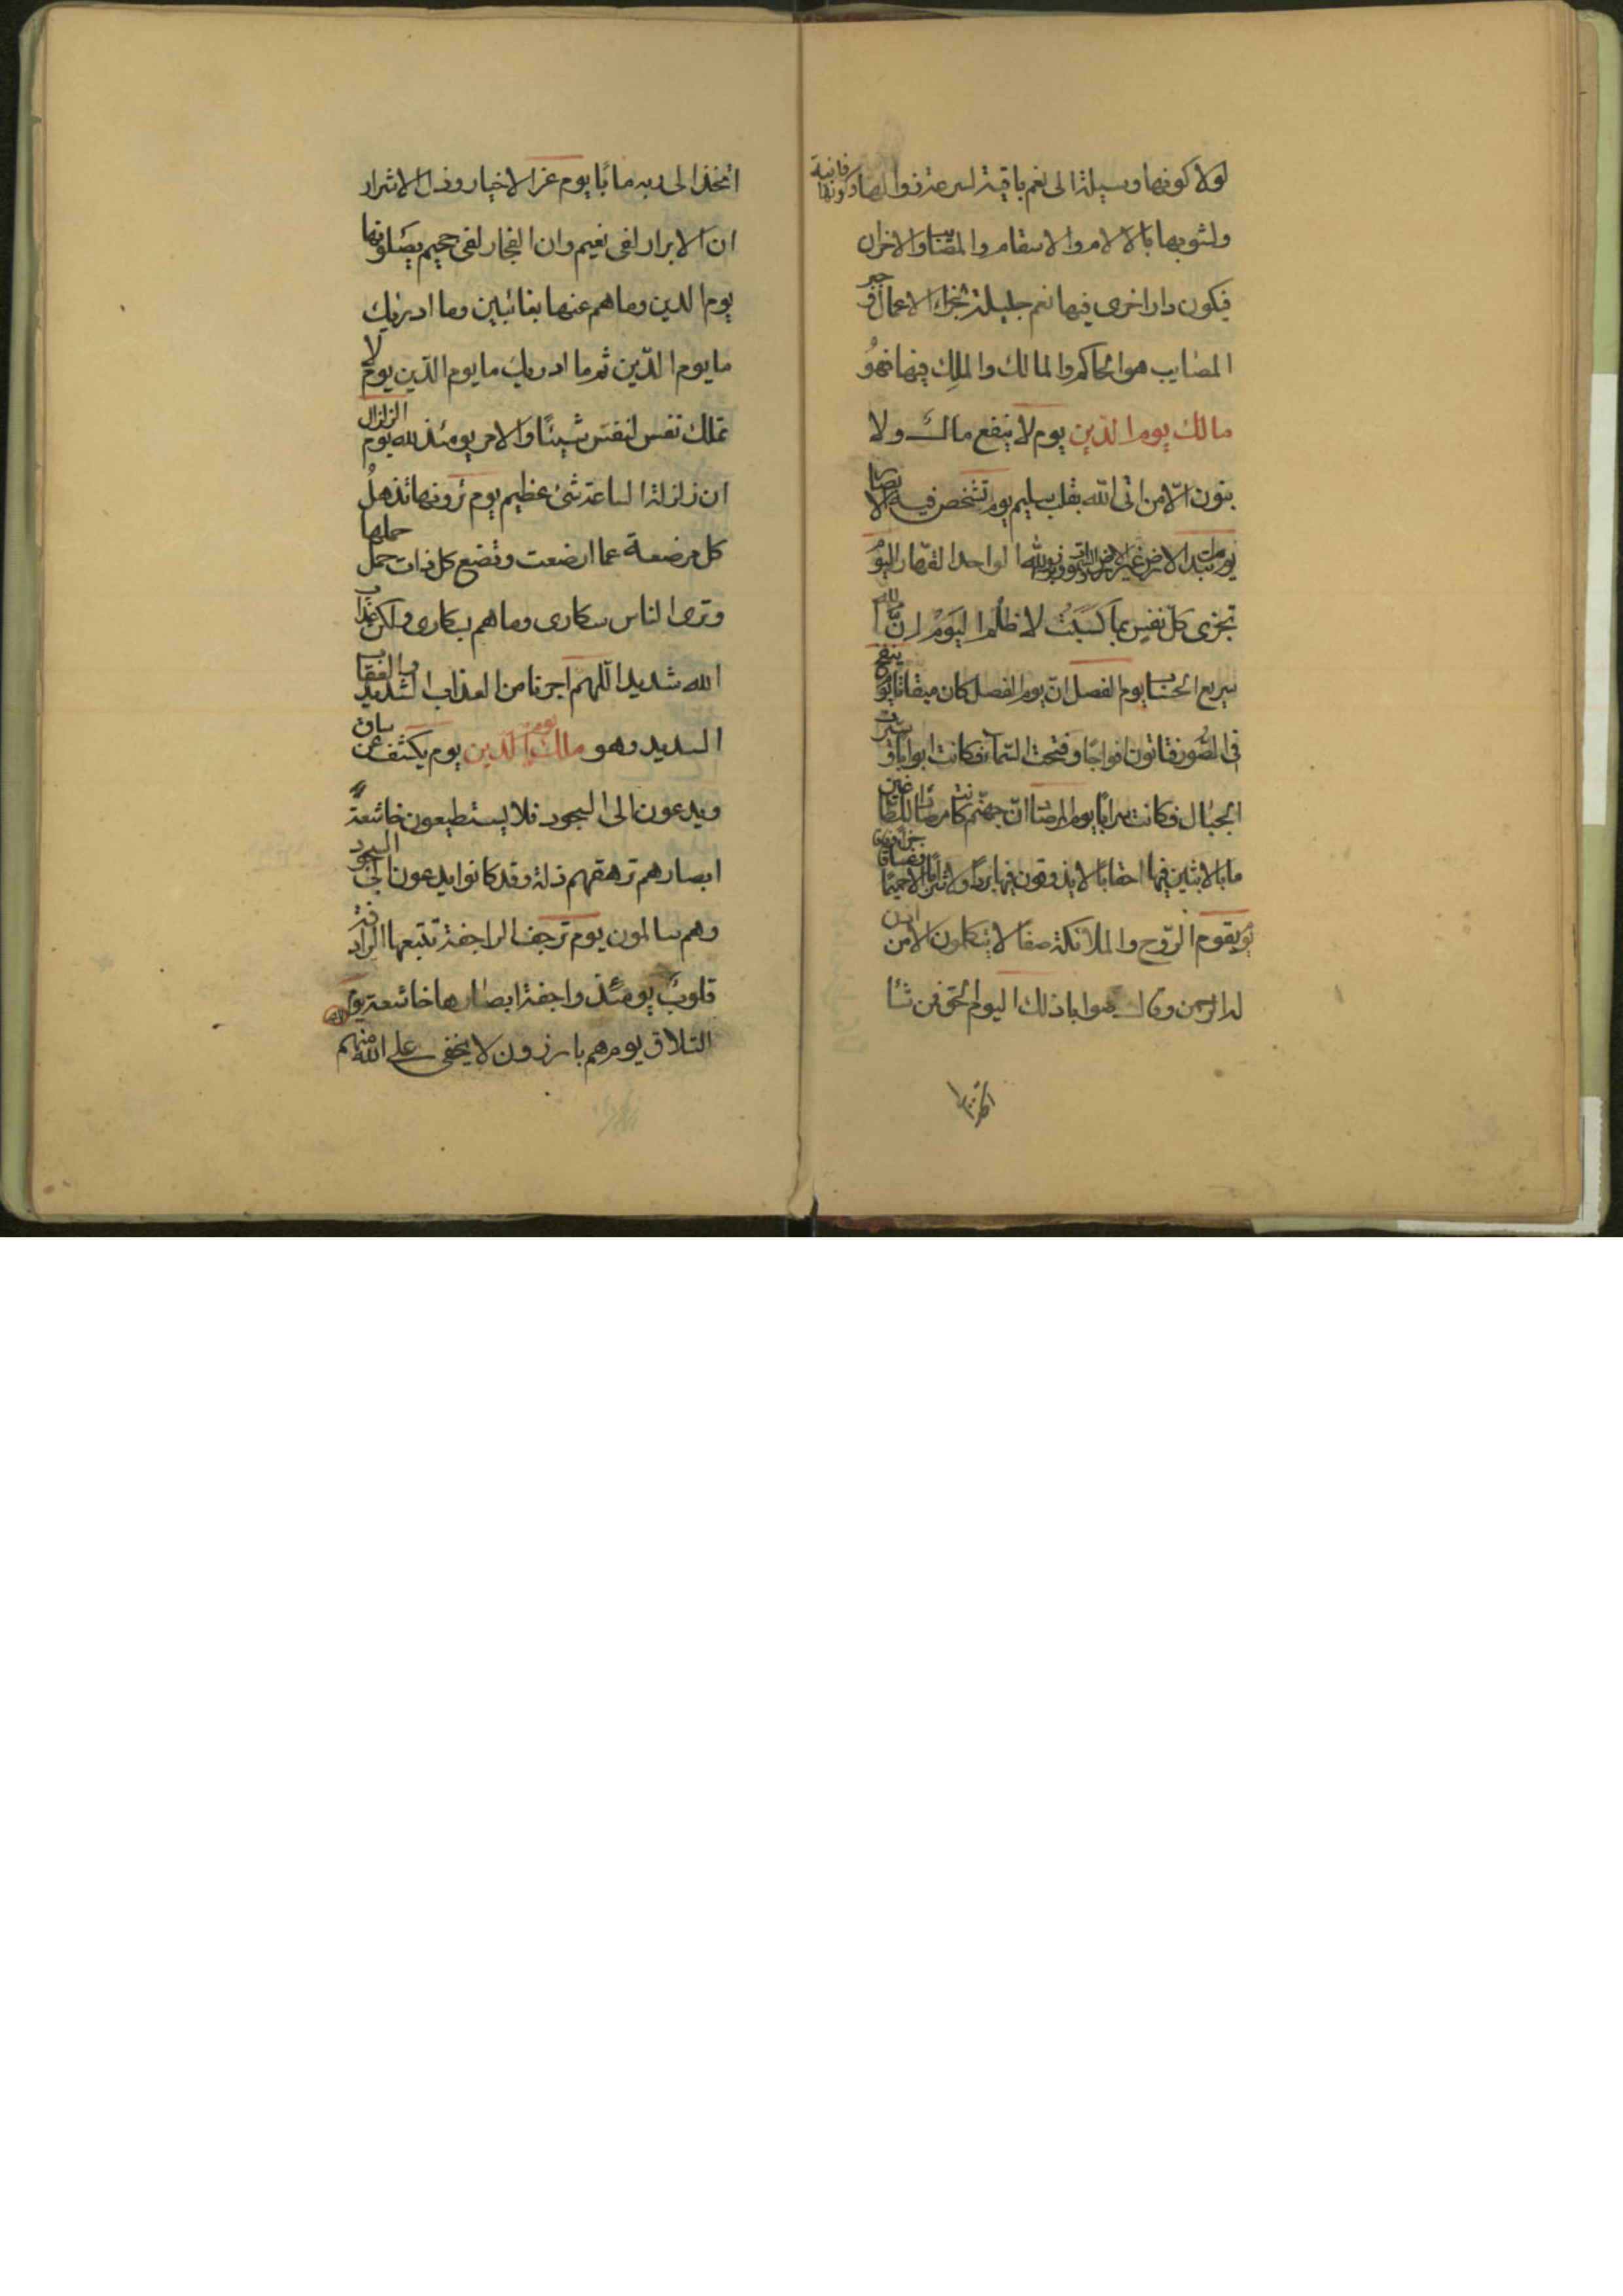 لولا كونها وسيلة الى نعم باقية لسرعة زوالها وكونها فانية
ولشوبها بالالام والاسقام والمصايب والاحزان
فيكون دار اخرى فيها نعم جليلة لجزاء الاعمال وجبر
المصايب هو الحاكم والمالك والملك فيها فهو
مالك يوم الدين يوم لا ينفع مال ولا
بنون الّا من اتى الله بقلب سليم يوم تشخص فيه الابصار
يوم تبدل الارض غير الارض والسموات وبرزوا لله الواحد القهار اليوم
تجزى كل نفس بما كسبت لا ظلم اليوم انّ الله
سريع الحساب يوم الفصل انّ يوم الفصل كان ميقاتا يوم ينفخ
فى الصّور فتاتون افواجًا وفتحت السّماء فكانت ابوابا و سيرت
الجبال فكانت سرابًا يوم المرصاد انّ جهنّم كانت مرصادا للطاغين
مابا لابثين فيها احقابًا لا يذوقون فيها بردًا ولا شرابًا الا حميمًا وغساقا
يوم يقوم الرّوح والملائكة صفًا لا يتكلمون الا من اذن
له الرحمن وقال صوابا ذلك اليوم الحق فمن شا
اتخذ
اتخذ الى ربه مابًا يوم عز الاخيار وذل الاشرار
ان الابرار لفى نعيم وان الفجار لفى جحيم يصلونها
يوم الدين وما هم عنها بغائبين وما ادريك
ما يوم الدّين ثم ما ادريك ما يوم الدّين يوم لا
تملك نفس لنفس شيئًا والامر يومئذ لله يوم الزلزال
ان زلزلة الساعة شىء عظيم يوم ترونها تذهل
كل مرضعة عما ارضعت وتضع كل ذات حمل حملها
وترى الناس سكارى وما هم بسكارى ولكن عذاب
الله شديد اللهم اجرنا من العذاب الشديد والعقاب
السديد وهو مالك يوم الدين يوم يكشف عن ساق
ويدعون الى السجود فلا يستطيعون خاشعة
ابصارهم ترهقهم ذلة وقد كانوا يدعون الى السجود
وهم سالمون يوم ترجف الراجفة تتبعها الرادفة
قلوبٌ يومئذ واجفة ابصارها خاشعة يوم
التلاق يوم هم بارزون لا يخفى على الله منهم